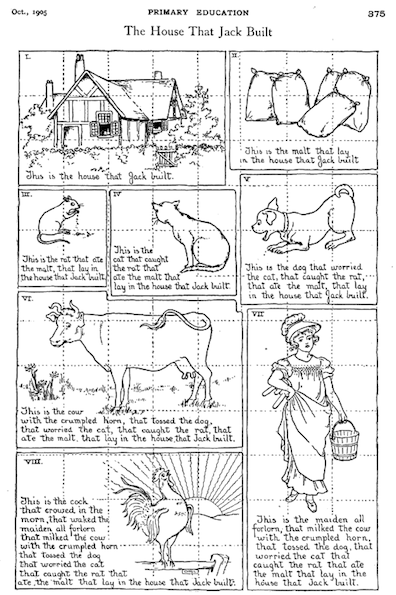 Oct., 1905
PRIMARY EDUCATION
375
The House That Jack Built
I.
This is the house that Jack built.
II.
This is the malt that lay
in the house that Jack built
III.
This is the rat that ate
the malt, that lay in
the house that Jack built.
IV
This is the
cat that caught
the rat that
ate the malt that
lay in the house that Jack built.
V
This is the dog that worried
the cat, that caught the rat,
that ate the malt, that lay
in the house that Jack built.
VI.
This is the cow
with the crumpled horn, that tossed the dog,
that worried the cat, that caught the rat, that
ate the malt, that lay in the house that Jack built.
VII
This is the maiden all
forlorn, that milked the cow
with the crumpled horn,
that tossed the dog, that
worried the cat that
caught the rat that ate
the malt that lay in the
house that Jack built.
VIII.
This is the cock
that crowed in the
morn, that waked the
maiden all forlorn
that milked the cow
with the crumpled horn
that tossed the dog
that worried the cat
that caught the rat that
ate the malt that lay in the house that Jack built.